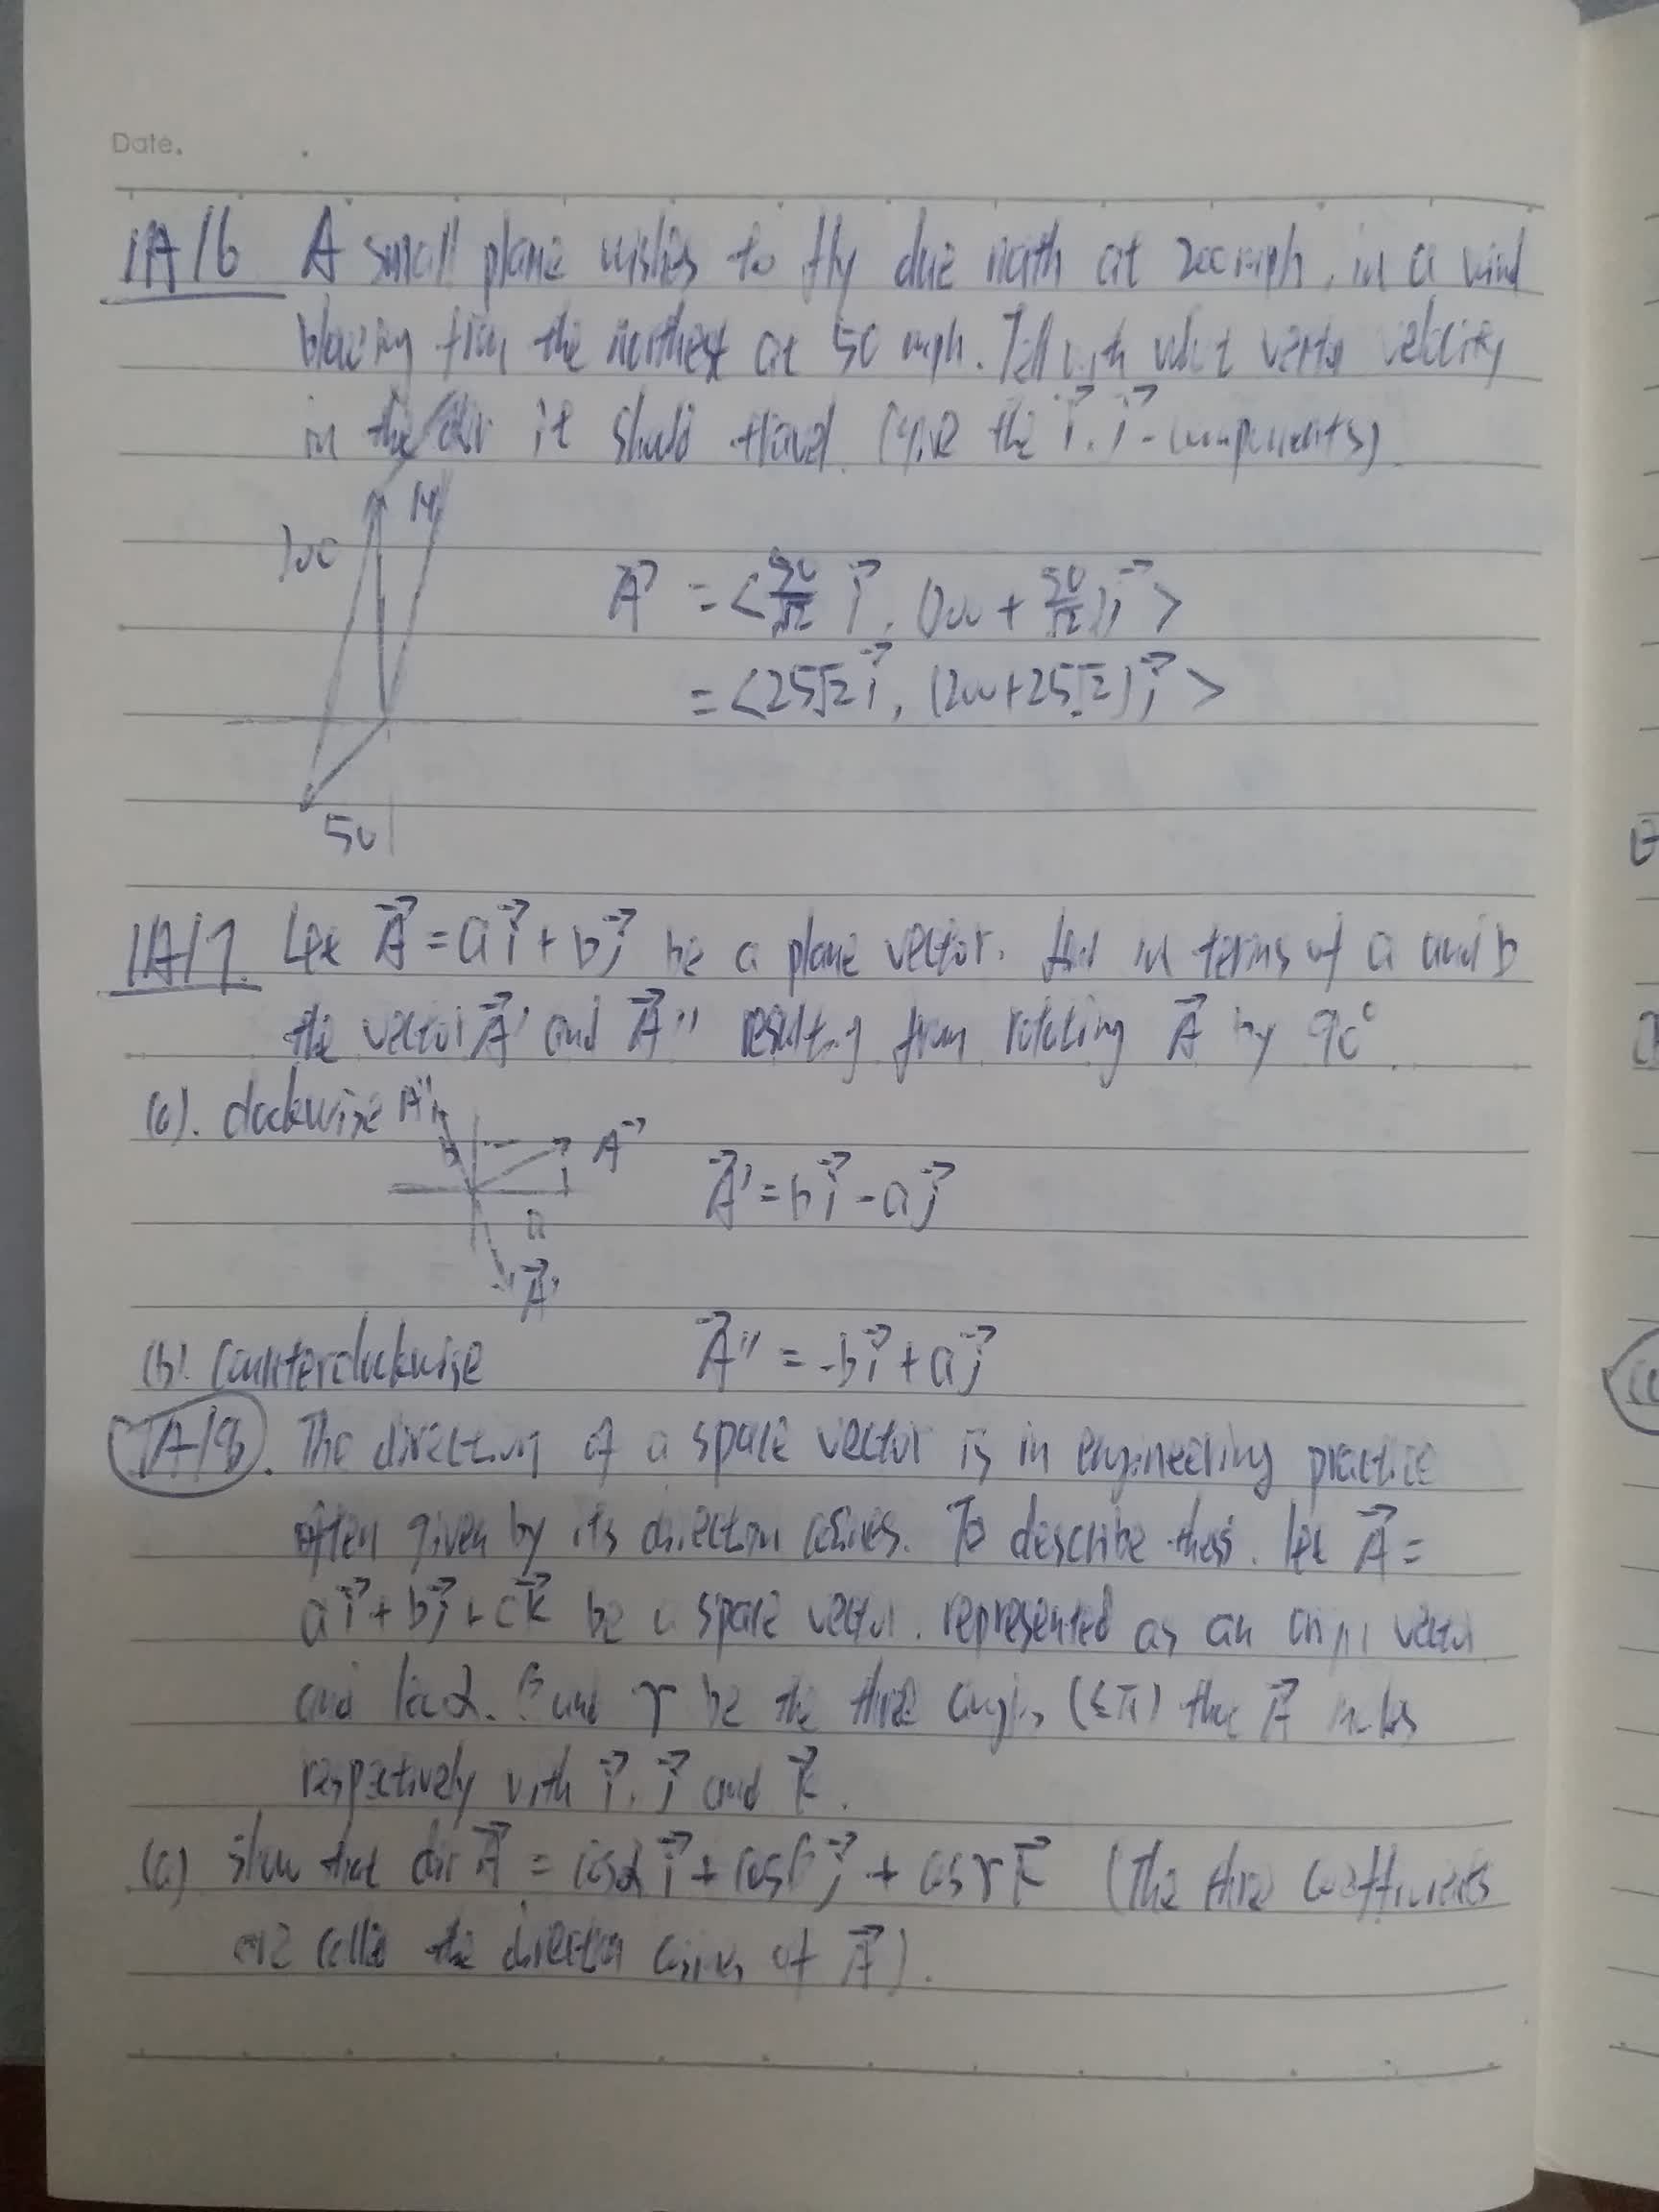 Date.
1A/6 A small plane wishes to fly due north at 200 mph, in a wind
blowing from the northeast at 50 mph. Tell with what vector velocity
in the air it should travel. (give the i⃗, j⃗ - components)
200
50
A⃗ = <50/√2 i⃗, (200 + 50/√2) j⃗>
= <25√2 i⃗, (200+25√2) j⃗>
1A/7. Let A⃗ = a i⃗ + b j⃗ be a plane vector. find in terms of a and b
the vector A⃗' and A⃗'' resulting from rotating A⃗ by 90°.
(a). clockwise A'' b A⃗ a A⃗' A⃗' = b i⃗ - a j⃗
(b). counterclockwise A⃗'' = -b i⃗ + a j⃗
1A/8. The direction of a space vector is in engineering practice
often given by its direction cosines. To describe these. let A⃗ =
a i⃗ + b j⃗ + c k⃗ be a space vector. represented as an origin vector
and let α. β and γ be the three angles (≤π) that A⃗ makes
respectively with i⃗, j⃗ and k⃗.
(a) Show that dir A⃗ = cosα i⃗ + cosβ j⃗ + cosγ k⃗ (The three coefficients
are called the direction cosines of A⃗).